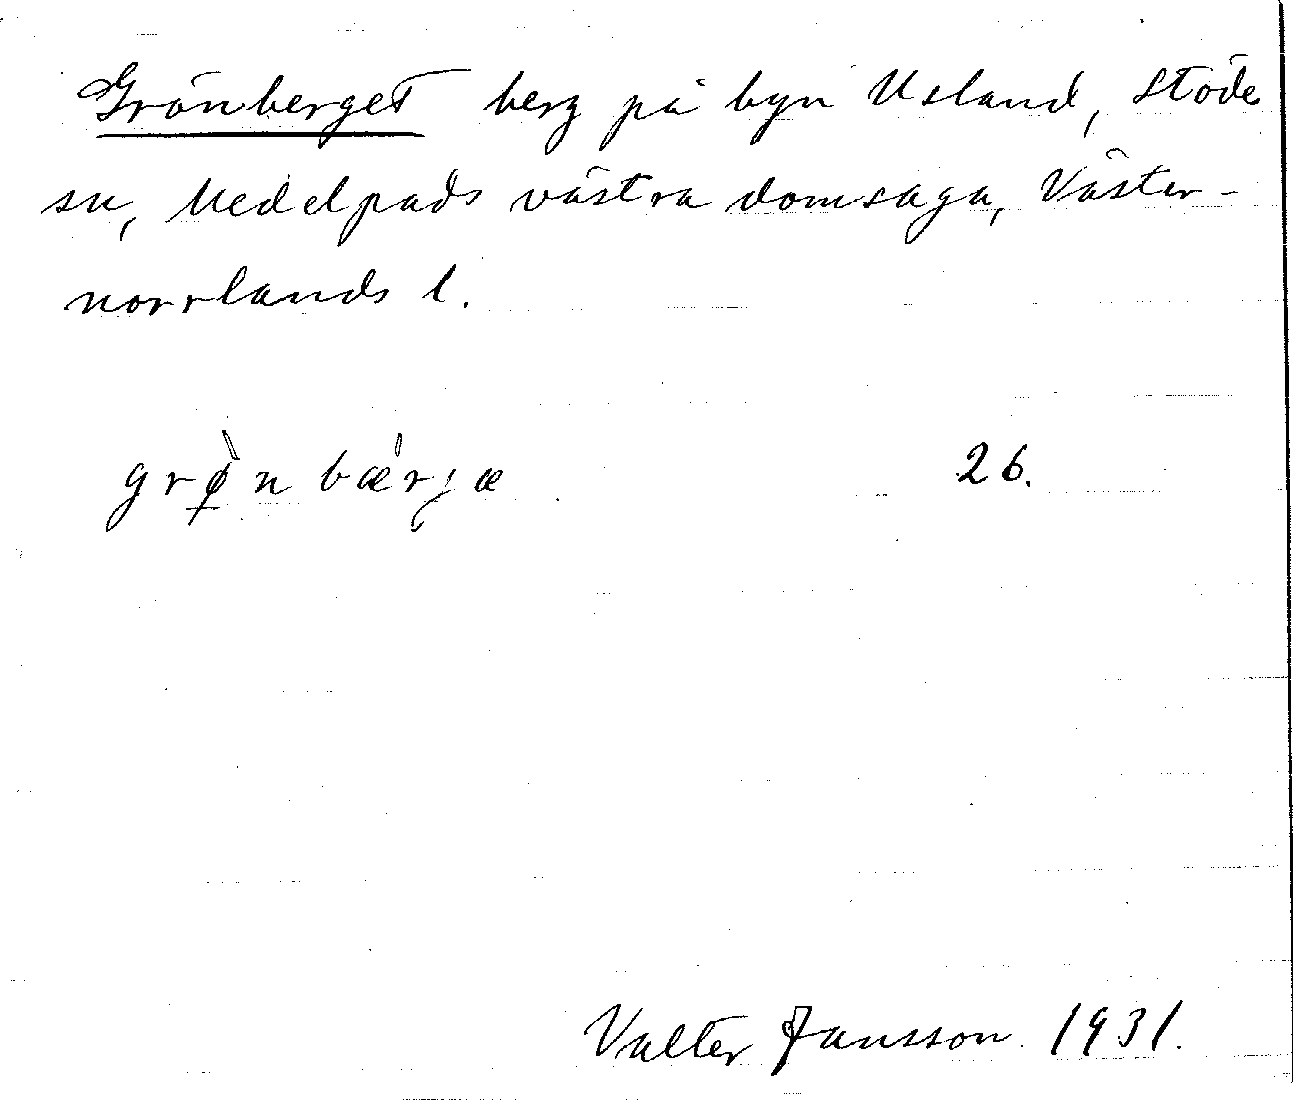 Grönberget berg på byn Usland, Stöde
sn, Medelpads västra domsaga, Väster-
norrlands l.
grø̀nbæ̀rjæ 26.
Valter Jansson 1931.